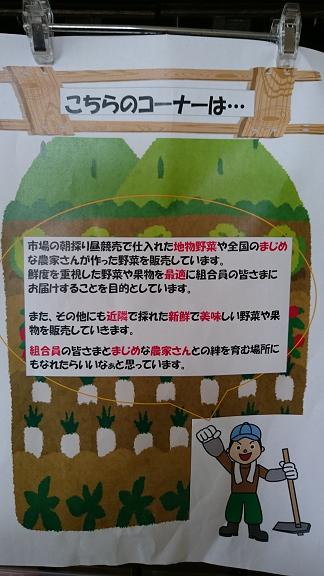 こちらのコーナーは…
市場の朝採り昼競売で仕入れた地物野菜や全国のまじめ
な農家さんが作った野菜を販売しています。
鮮度を重視した野菜や果物を最適に組合員の皆さまに
お届けすることを目的としています。
また、その他にも近隣で採れた新鮮で美味しい野菜や果
物を販売していきます。
組合員の皆さまとまじめな農家さんとの絆を育む場所に
もなれたらいいなぁと思っています。